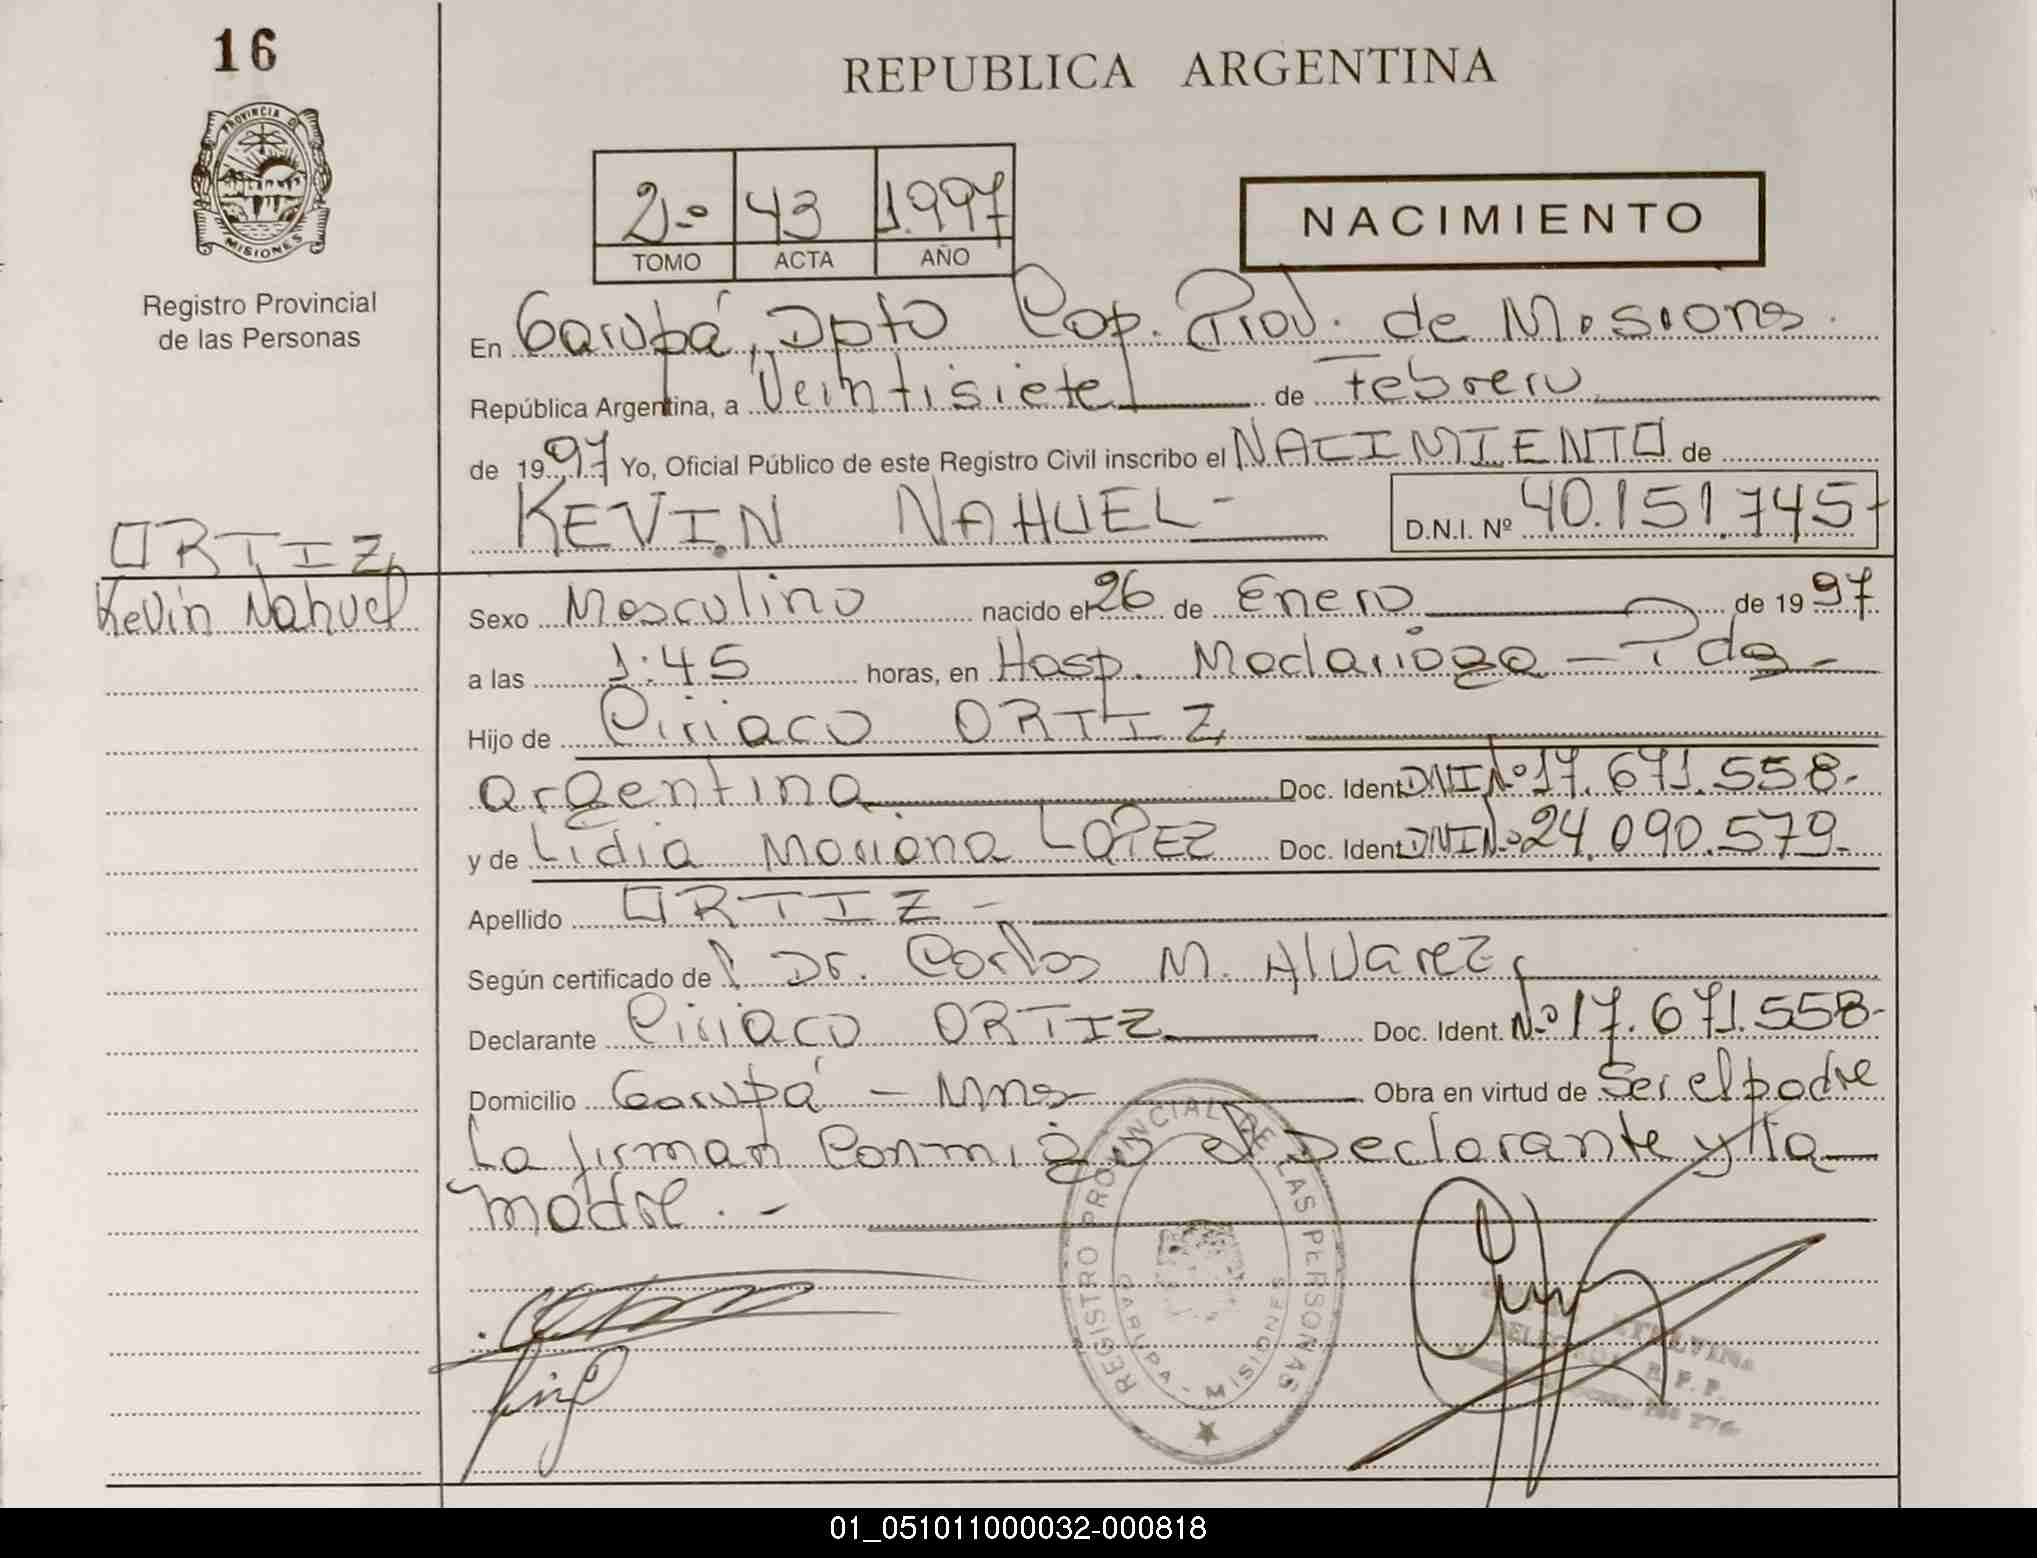 16
REPUBLICA ARGENTINA
PROVINCIA DE
MISIONES
Registro Provincial
de las Personas
2º 43 1.997
TOMO ACTA AÑO
NACIMIENTO
En Garupá, Dpto Cap. Prov. de Misiones.
República Argentina, a Veintisiete de Febrero
de 1997 Yo, Oficial Público de este Registro Civil inscribo el NACIMIENTO de
KEVIN NAHUEL- D.N.I. Nº 40.151.745-
ORTIZ
Kevin Nahuel
Sexo Masculino nacido el 26 de Enero de 1997
a las 1:45 horas, en Hosp. Madariaga - Pdas -
Hijo de Ciriaco ORTIZ
argentina Doc. Ident. DNI Nº 17.671.558-
y de Lidia Mariana LOPEZ Doc. Ident. DNI Nº 24.090.579-
Apellido ORTIZ -
Según certificado de Dr. Carlos M. Alvarez
Declarante Ciriaco ORTIZ Doc. Ident. Nº 17.671.558-
Domicilio Garupá - Mnes- Obra en virtud de Ser el padre
La firman Conmigo el Declarante y la
madre. -
REGISTRO PROVINCIAL DE LAS PERSONAS
GARUPA - MISIONES
R. P. P.
276
01_051011000032-000818